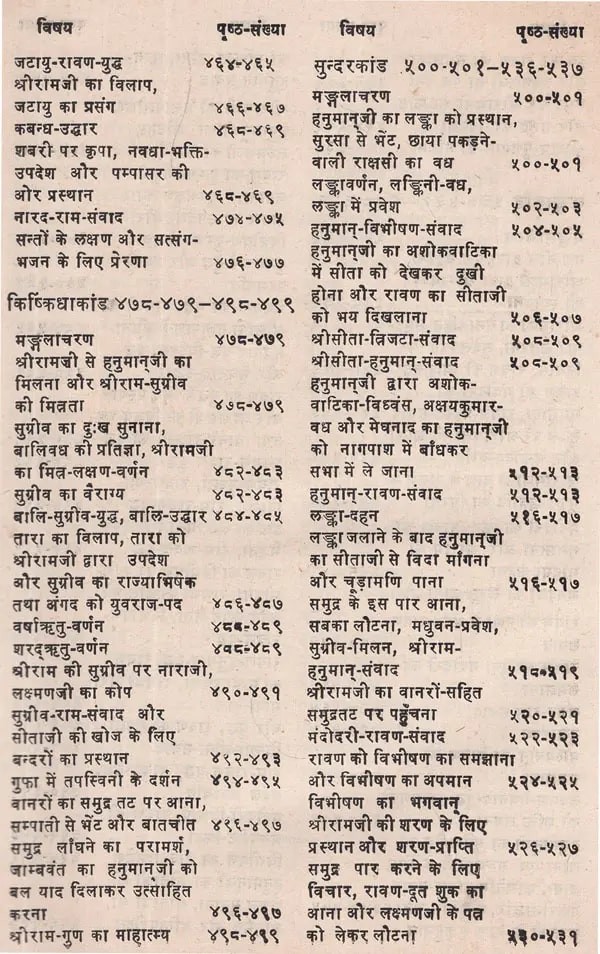 विषय पृष्ठ-संख्या
जटायु-रावण-युद्ध ४६४-४६५
श्रीरामजी का विलाप,
जटायु का प्रसंग ४६६-४६७
कबन्ध-उद्धार ४६८-४६९
शबरी पर कृपा, नवधा-भक्ति-
उपदेश और पम्पासर की
ओर प्रस्थान ४६८-४६९
नारद-राम-संवाद ४७४-४७५
सन्तों के लक्षण और सत्संग-
भजन के लिए प्रेरणा ४७६-४७७
किष्किधाकांड ४७८-४७९—४९८-४९९
मङ्गलाचरण ४७८-४७९
श्रीरामजी से हनुमान्‌जी का
मिलना और श्रीराम-सुग्रीव
की मित्रता ४७८-४७९
सुग्रीव का दुःख सुनाना,
बालिवध की प्रतिज्ञा, श्रीरामजी
का मित्र-लक्षण-वर्णन ४८२-४८३
सुग्रीव का वैराग्य ४८२-४८३
बालि-सुग्रीव-युद्ध, बालि-उद्धार ४८४-४८५
तारा का विलाप, तारा को
श्रीरामजी द्वारा उपदेश
और सुग्रीव का राज्याभिषेक
तथा अंगद को युवराज-पद ४८६-४८७
वर्षाऋतु-वर्णन ४८८-४८९
शरद्ऋतु-वर्णन ४८८-४८९
श्रीराम की सुग्रीव पर नाराजी,
लक्ष्मणजी का कोप ४९०-४९१
सुग्रीव-राम-संवाद और
सीताजी की खोज के लिए
बन्दरों का प्रस्थान ४९२-४९३
गुफा में तपस्विनी के दर्शन ४९४-४९५
वानरों का समुद्र तट पर आना,
सम्पाती से भेंट और बातचीत ४९६-४९७
समुद्र लाँघने का परामर्श,
जाम्बवंत का हनुमान्‌जी को
बल याद दिलाकर उत्साहित
करना ४९६-४९७
श्रीराम-गुण का माहात्म्य ४९८-४९९
विषय पृष्ठ-संख्या
सुन्दरकांड ५००-५०१—५३६-५३७
मङ्गलाचरण ५००-५०१
हनुमान्‌जी का लङ्का को प्रस्थान,
सुरसा से भेंट, छाया पकड़ने-
वाली राक्षसी का वध ५००-५०१
लङ्कावर्णन, लङ्किनी-वध,
लङ्का में प्रवेश ५०२-५०३
हनुमान्-विभीषण-संवाद ५०४-५०५
हनुमान्‌जी का अशोकवाटिका
में सीता को देखकर दुखी
होना और रावण का सीताजी
को भय दिखलाना ५०६-५०७
श्रीसीता-त्रिजटा-संवाद ५०८-५०९
श्रीसीता-हनुमान्-संवाद ५०८-५०९
हनुमान्‌जी द्वारा अशोक-
वाटिका-विध्वंस, अक्षयकुमार-
वध और मेघनाद का हनुमान्‌जी
को नागपाश में बाँधकर
सभा में ले जाना ५१२-५१३
हनुमान्-रावण-संवाद ५१२-५१३
लङ्का-दहन ५१६-५१७
लङ्का जलाने के बाद हनुमान्‌जी
का सीताजी से विदा माँगना
और चूड़ामणि पाना ५१६-५१७
समुद्र के इस पार आना,
सबका लौटना, मधुवन-प्रवेश,
सुग्रीव-मिलन, श्रीराम-
हनुमान्-संवाद ५१८-५१९
श्रीरामजी का वानरों-सहित
समुद्रतट पर पहुँचना ५२०-५२१
मंदोदरी-रावण-संवाद ५२२-५२३
रावण को विभीषण का समझाना
और विभीषण का अपमान ५२४-५२५
विभीषण का भगवान्
श्रीरामजी की शरण के लिए
प्रस्थान और शरण-प्राप्ति ५२६-५२७
समुद्र पार करने के लिए
विचार, रावण-दूत शुक का
आना और लक्ष्मणजी के पत्र
को लेकर लौटना ५३०-५३१